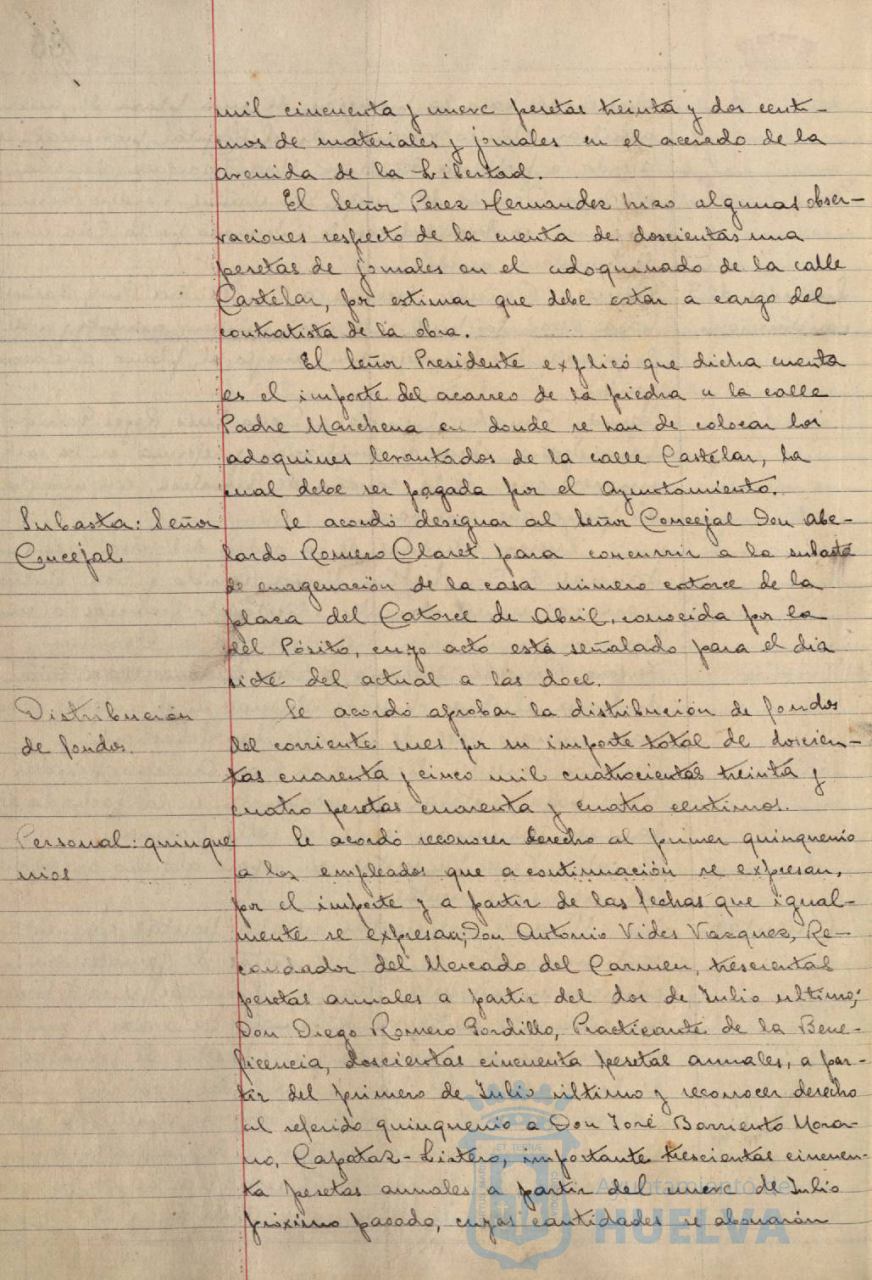 mil cincuenta y nueve pesetas treinta y dos centi-
mos de materiales y jornales en el acerado de la
avenida de la Libertad.
El Señor Perez Hernandez hizo algunas obser-
vaciones respecto de la cuenta de doscientas una
pesetas de jornales en el adoquinado de la calle
Castelar, por estimar que debe estar a cargo del
contratista de la obra.
El Señor Presidente explicó que dicha cuenta
es el importe del acarreo de la piedra a la calle
Padre Marchena en donde se han de colocar los
adoquines levantados de la calle Castelar, la
cual debe ser pagada por el Ayuntamiento.
Subasta: Señor
Concejal
Se acordó designar al Señor Concejal Don Abe-
lardo Romero Claret para concurrir a la subasta
de enagenación de la casa número catorce de la
plaza del Catorce de Abril, conocida por la
del Pósito, cuyo acto está señalado para el dia
siete del actual a las doce.
Distribución
de fondos.
Se acordó aprobar la distribución de fondos
del corriente mes por su importe total de doscien-
tas cuarenta y cinco mil cuatrocientas treinta y
cuatro pesetas cuarenta y cuatro centimos.
Personal: quinque
nios
Se acordó reconocer derecho al primer quinquenio
a los empleados que a continuación se expresan,
por el importe y a partir de las fechas que igual-
mente se expresan; Don Antonio Vides Vazquez, Re-
caudador del Mercado del Carmen, trescientas
pesetas anuales a partir del dos de Julio ultimo;
Don Diego Romero Gordillo, Practicante de la Bene-
ficencia, doscientas cincuenta pesetas anuales, a par-
tir del primero de Julio ultimo y reconocer derecho
al referido quinquenio a Don José Barriento Mora-
no, Capataz-Listero, importante trescientas cincuen-
ta pesetas anuales a partir del nueve de Julio
próximo pasado, cuyas cantidades se abonarán
Ayuntamiento de
HUELVA